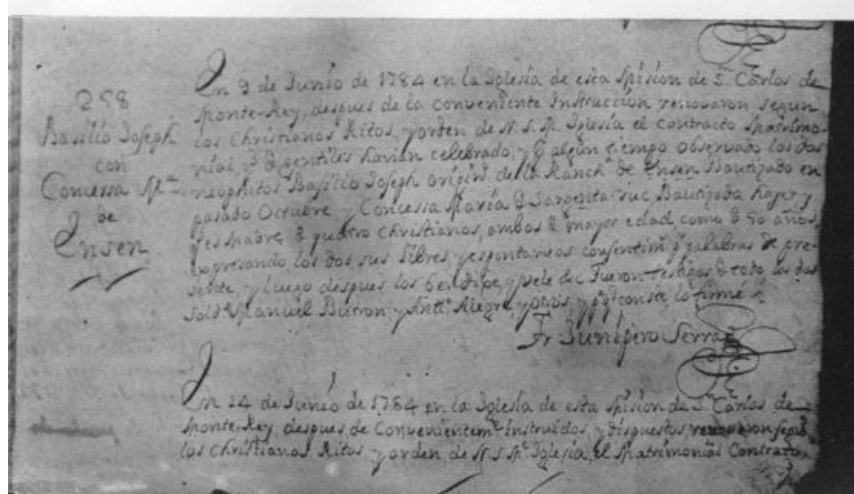 258
Basilio Joseph
con
Concessa Ma
de
Ensen
En 9 de Junio de 1784 en la Iglesia de esta Mision de Sn Carlos de
Monte-Rey, despues de la conveniente Instrucción renovaron segun
los Christianos Ritos, y orden de N. S. M. Iglesia el contracto Matrimo-
nial, q de gentiles havian celebrado, y algun tiempo observado los dos
neophitos Basilio Joseph origin. de la Ranch.a de Ensen Bautizado en
pasado Octubre y Concessa Maria de Sargenta-ruc, Bautizada hayer y
es Madre de quatro Christianos, ambos de mayor edad como de 50 años,
expresando los dos sus libres y espontaneos consentim. palabras de pre-
sente, y luego despues los Fueron testigos de todo los dos
Sold.s Manuel Butron, y Ant.o Alegre, y otros, y pa q conste, lo firmé
Fr Junípero Serra
En 14 de Junio de 1784 en la Iglesia de esta Mision de S. Carlos de
Monte-Rey, despues de Convenientem.te Instruidos, y dispuestos renovaron segun
los Christianos Ritos, y orden, de N. S. M.e Iglesia, el Matrimonial Contrato